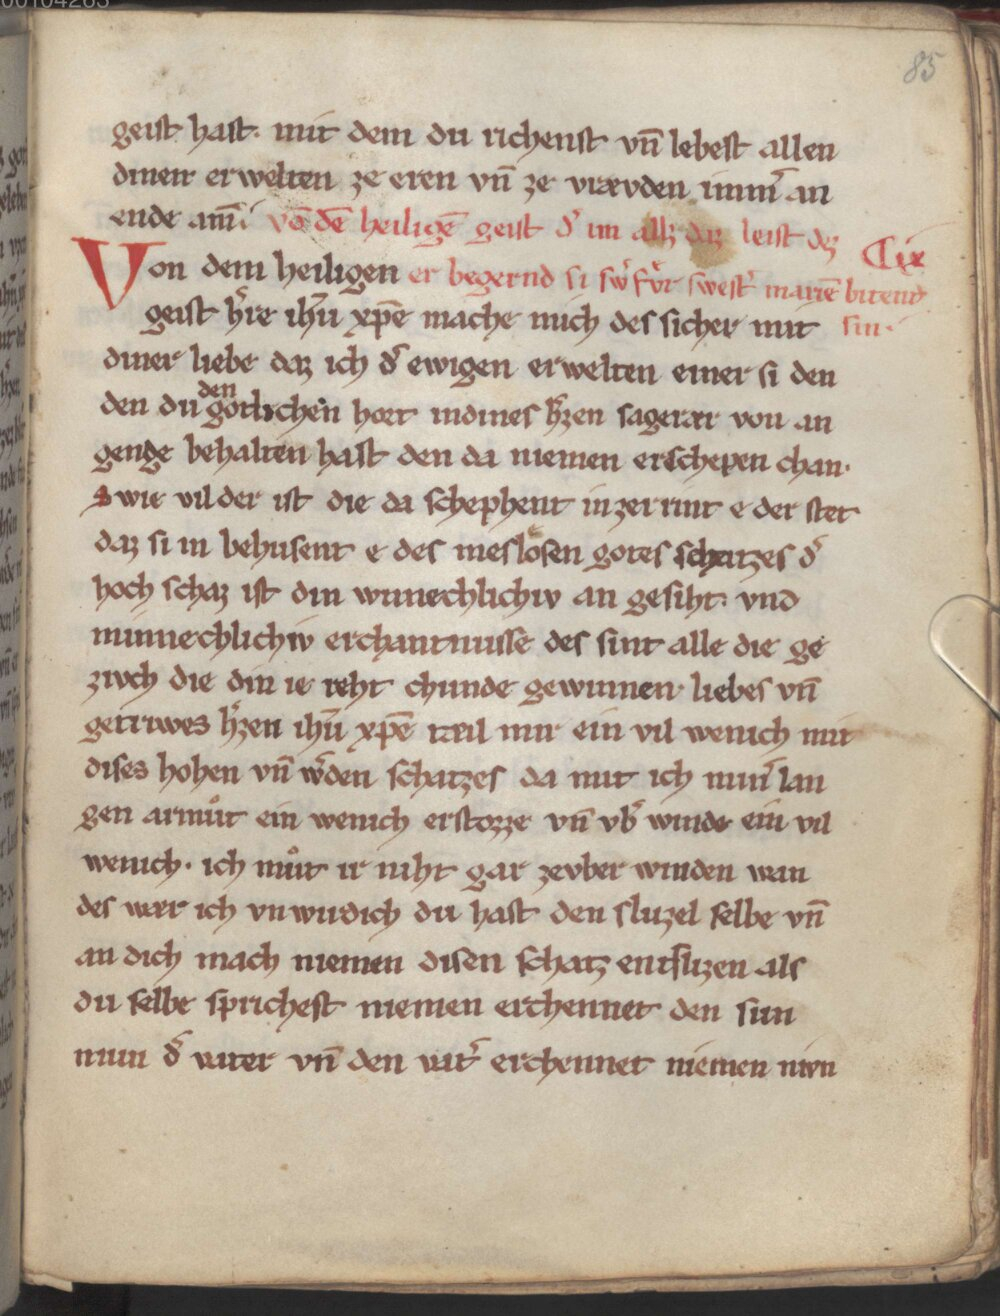 00104263
85
geist hast· mit dem du richenst vn̄ lebest allen
dinen erwelten ze eren vn̄ ze vrævden imm̄ an
ende am̄· vō dē heiligē geist d̓ im allz daz leist dez
Von dem heiligen er begernd si sw̓ fv̓r swest̓ mariē bitend
Cix
geist h̓re ihū xp̄e mache mich des sicher mit sin·
diner liebe daz ich d̓ ewigen erwelten einer si den
den du den gotlichen hort indines h̓zen sagerær von an
genge behalten hast den da niemen erschepen chan·
Swie vil der ist die da schephent in zerrint e der stet
daz si in behusent e des meslosen gotes schatzes d̓
hoch schaz ist din wunechlichiv an gesiht· vnd
minnechlichiv erchantnusse des sint alle die ge
zivch die din ie reht chunde gewinnen· liebes vn̄
getriwes h̓zen ihū xp̄e tæil mir ein vil wenich mit
dises hohen vn̄ w̓den schatzes da mit ich min̓ lan
gen armůt ein wenich erstozze vn̄ vb̓ winde ein vil
wenich· ich můt ir niht gar zevber winden wan
des wær ich vnwirdich du hast den sluzel selbe vn̄
an dich mach niemen disen schatz entslizen als
du selbe sprichest niemen erchennet den sun
niun d̓ vater vn̄ den vat̓ erchennet niemen nivn